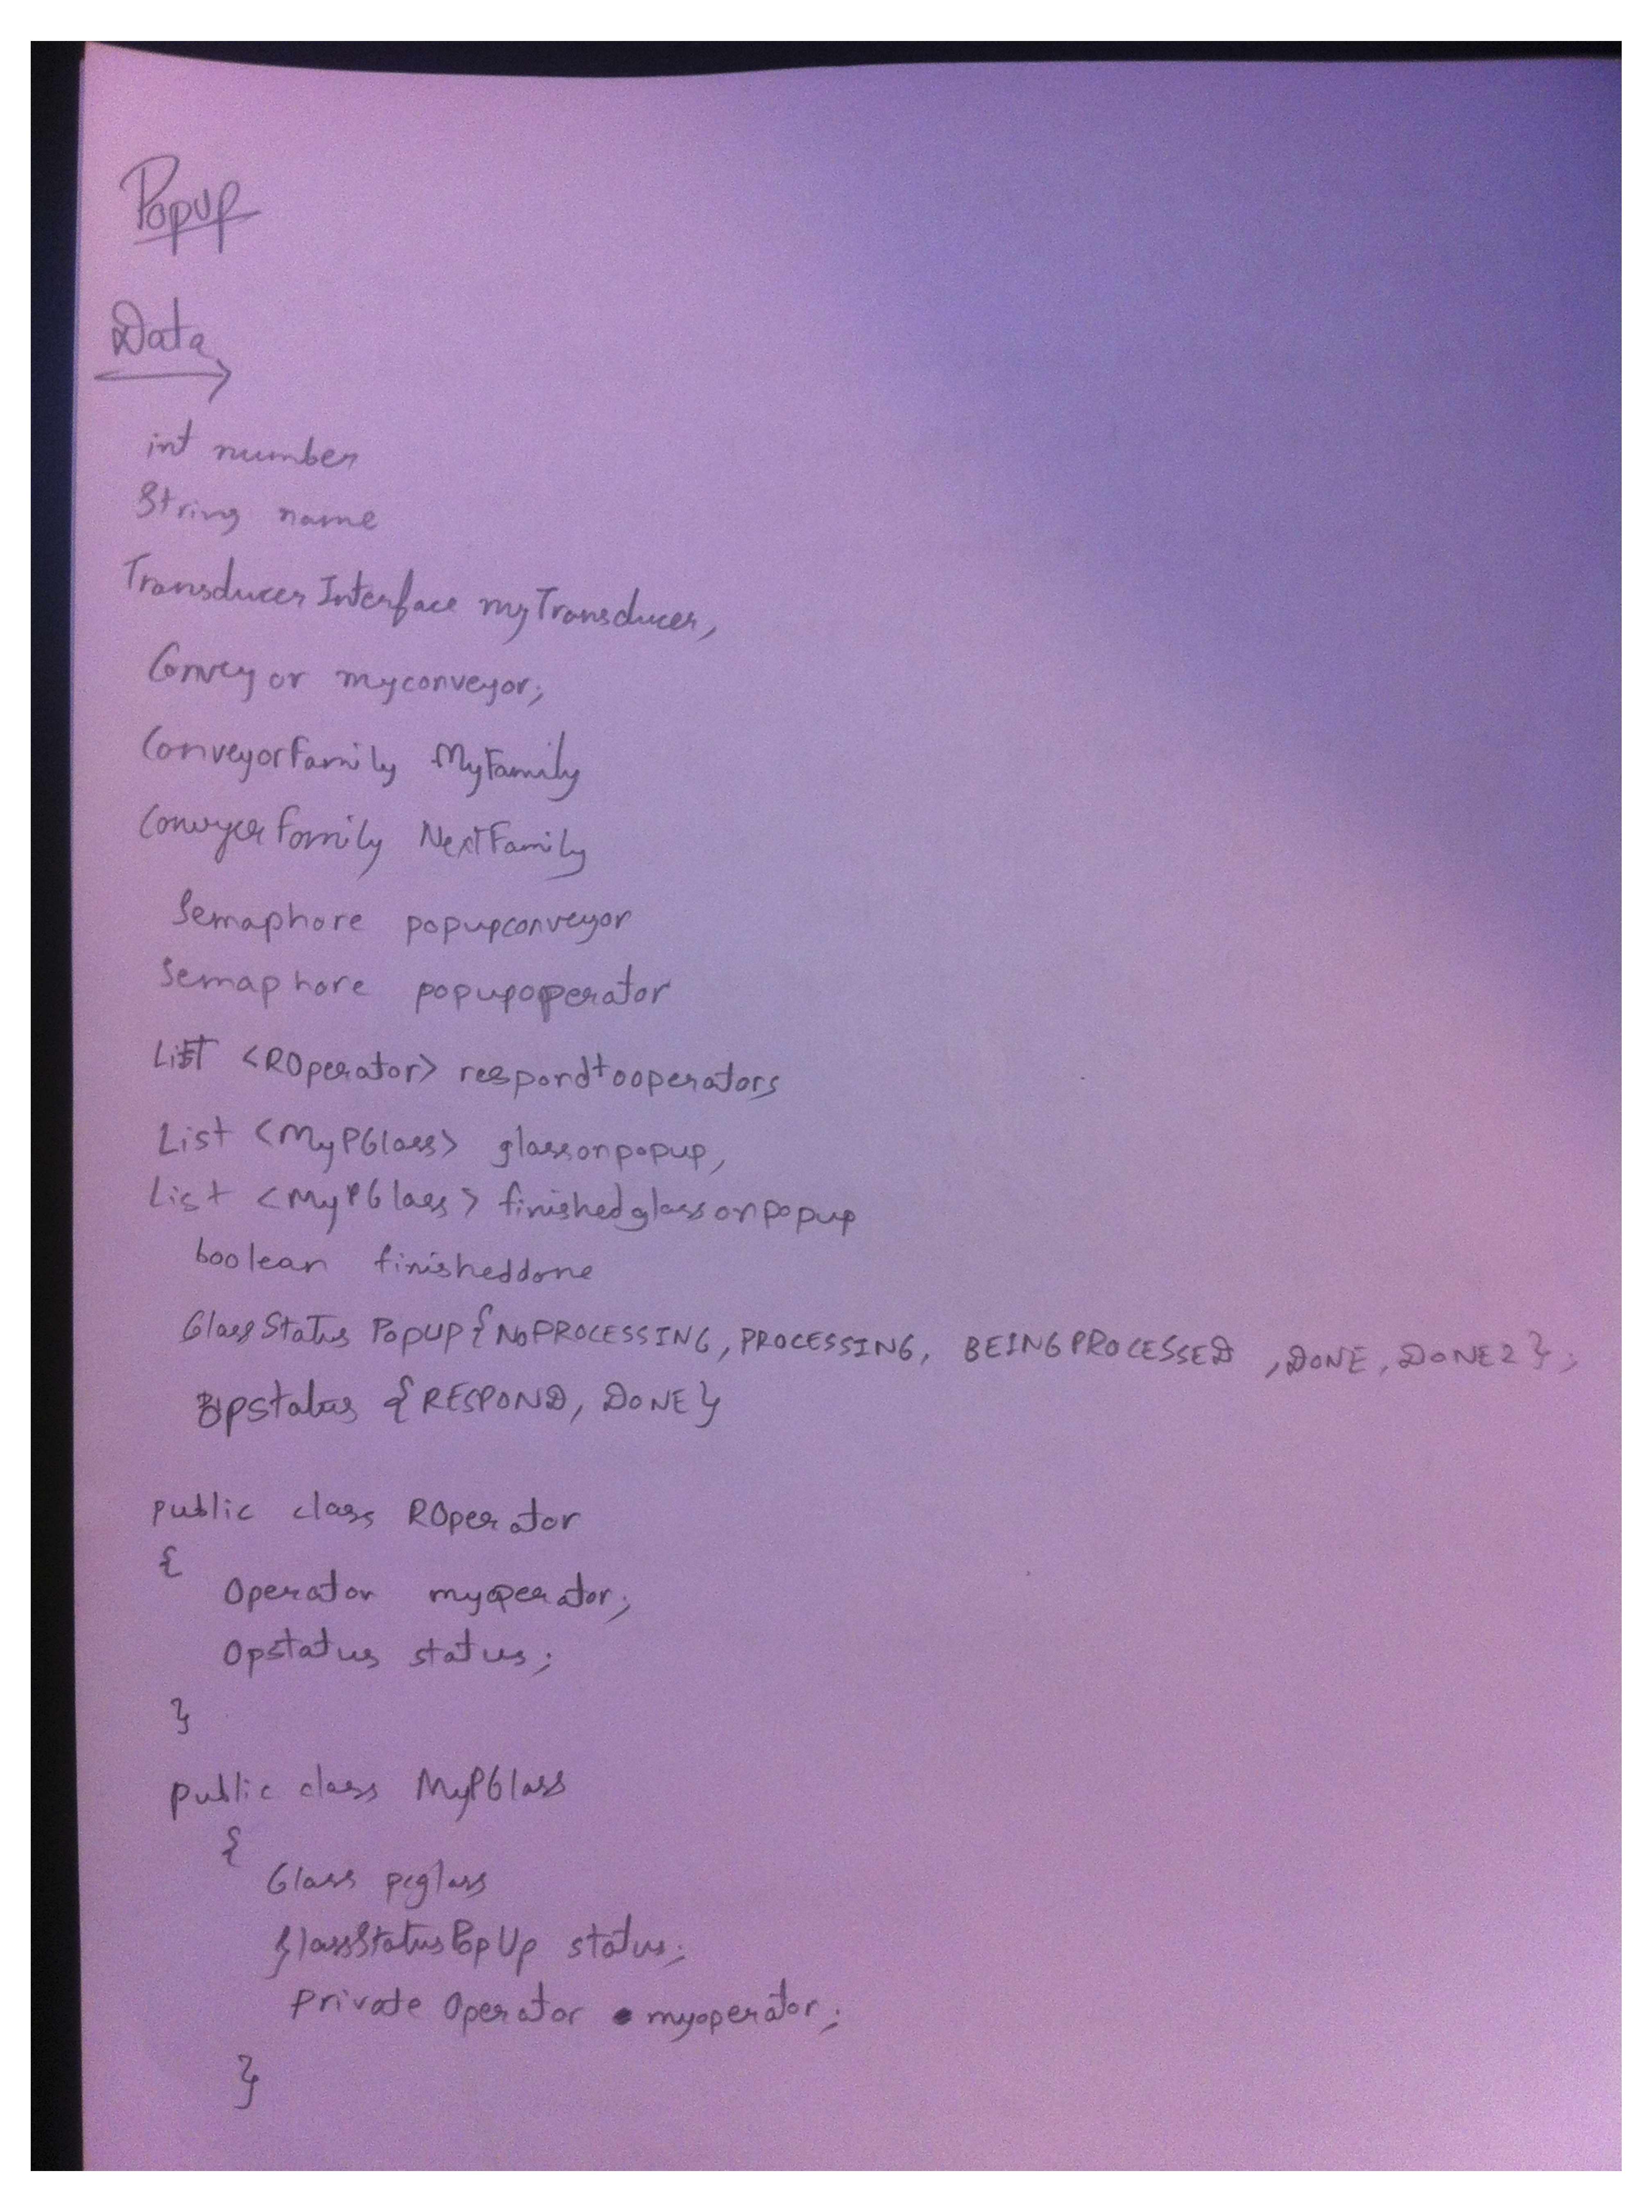 Popup
Data
int number
String name
Transducer Interface myTransducer,
Conveyor myconveyor;
ConveyorFamily MyFamily
ConveyerFamily NextFamily
Semaphore popupconveyor
Semaphore popupoperator
List <ROperator> respondtooperators
List <MyPGlass> glassonpopup,
List <MyPGlass> finishedglassonpopup
boolean finisheddone
GlassStatus PopUp {NOPROCESSING, PROCESSING, BEINGPROCESSED, DONE, DONE2};
Opstatus {RESPOND, DONE}
public class ROperator
{
Operator myoperator;
Opstatus status;
}
public class MyPGlass
{
Glass pcglass
glassStatusPopUp status;
Private Operator myoperator;
}